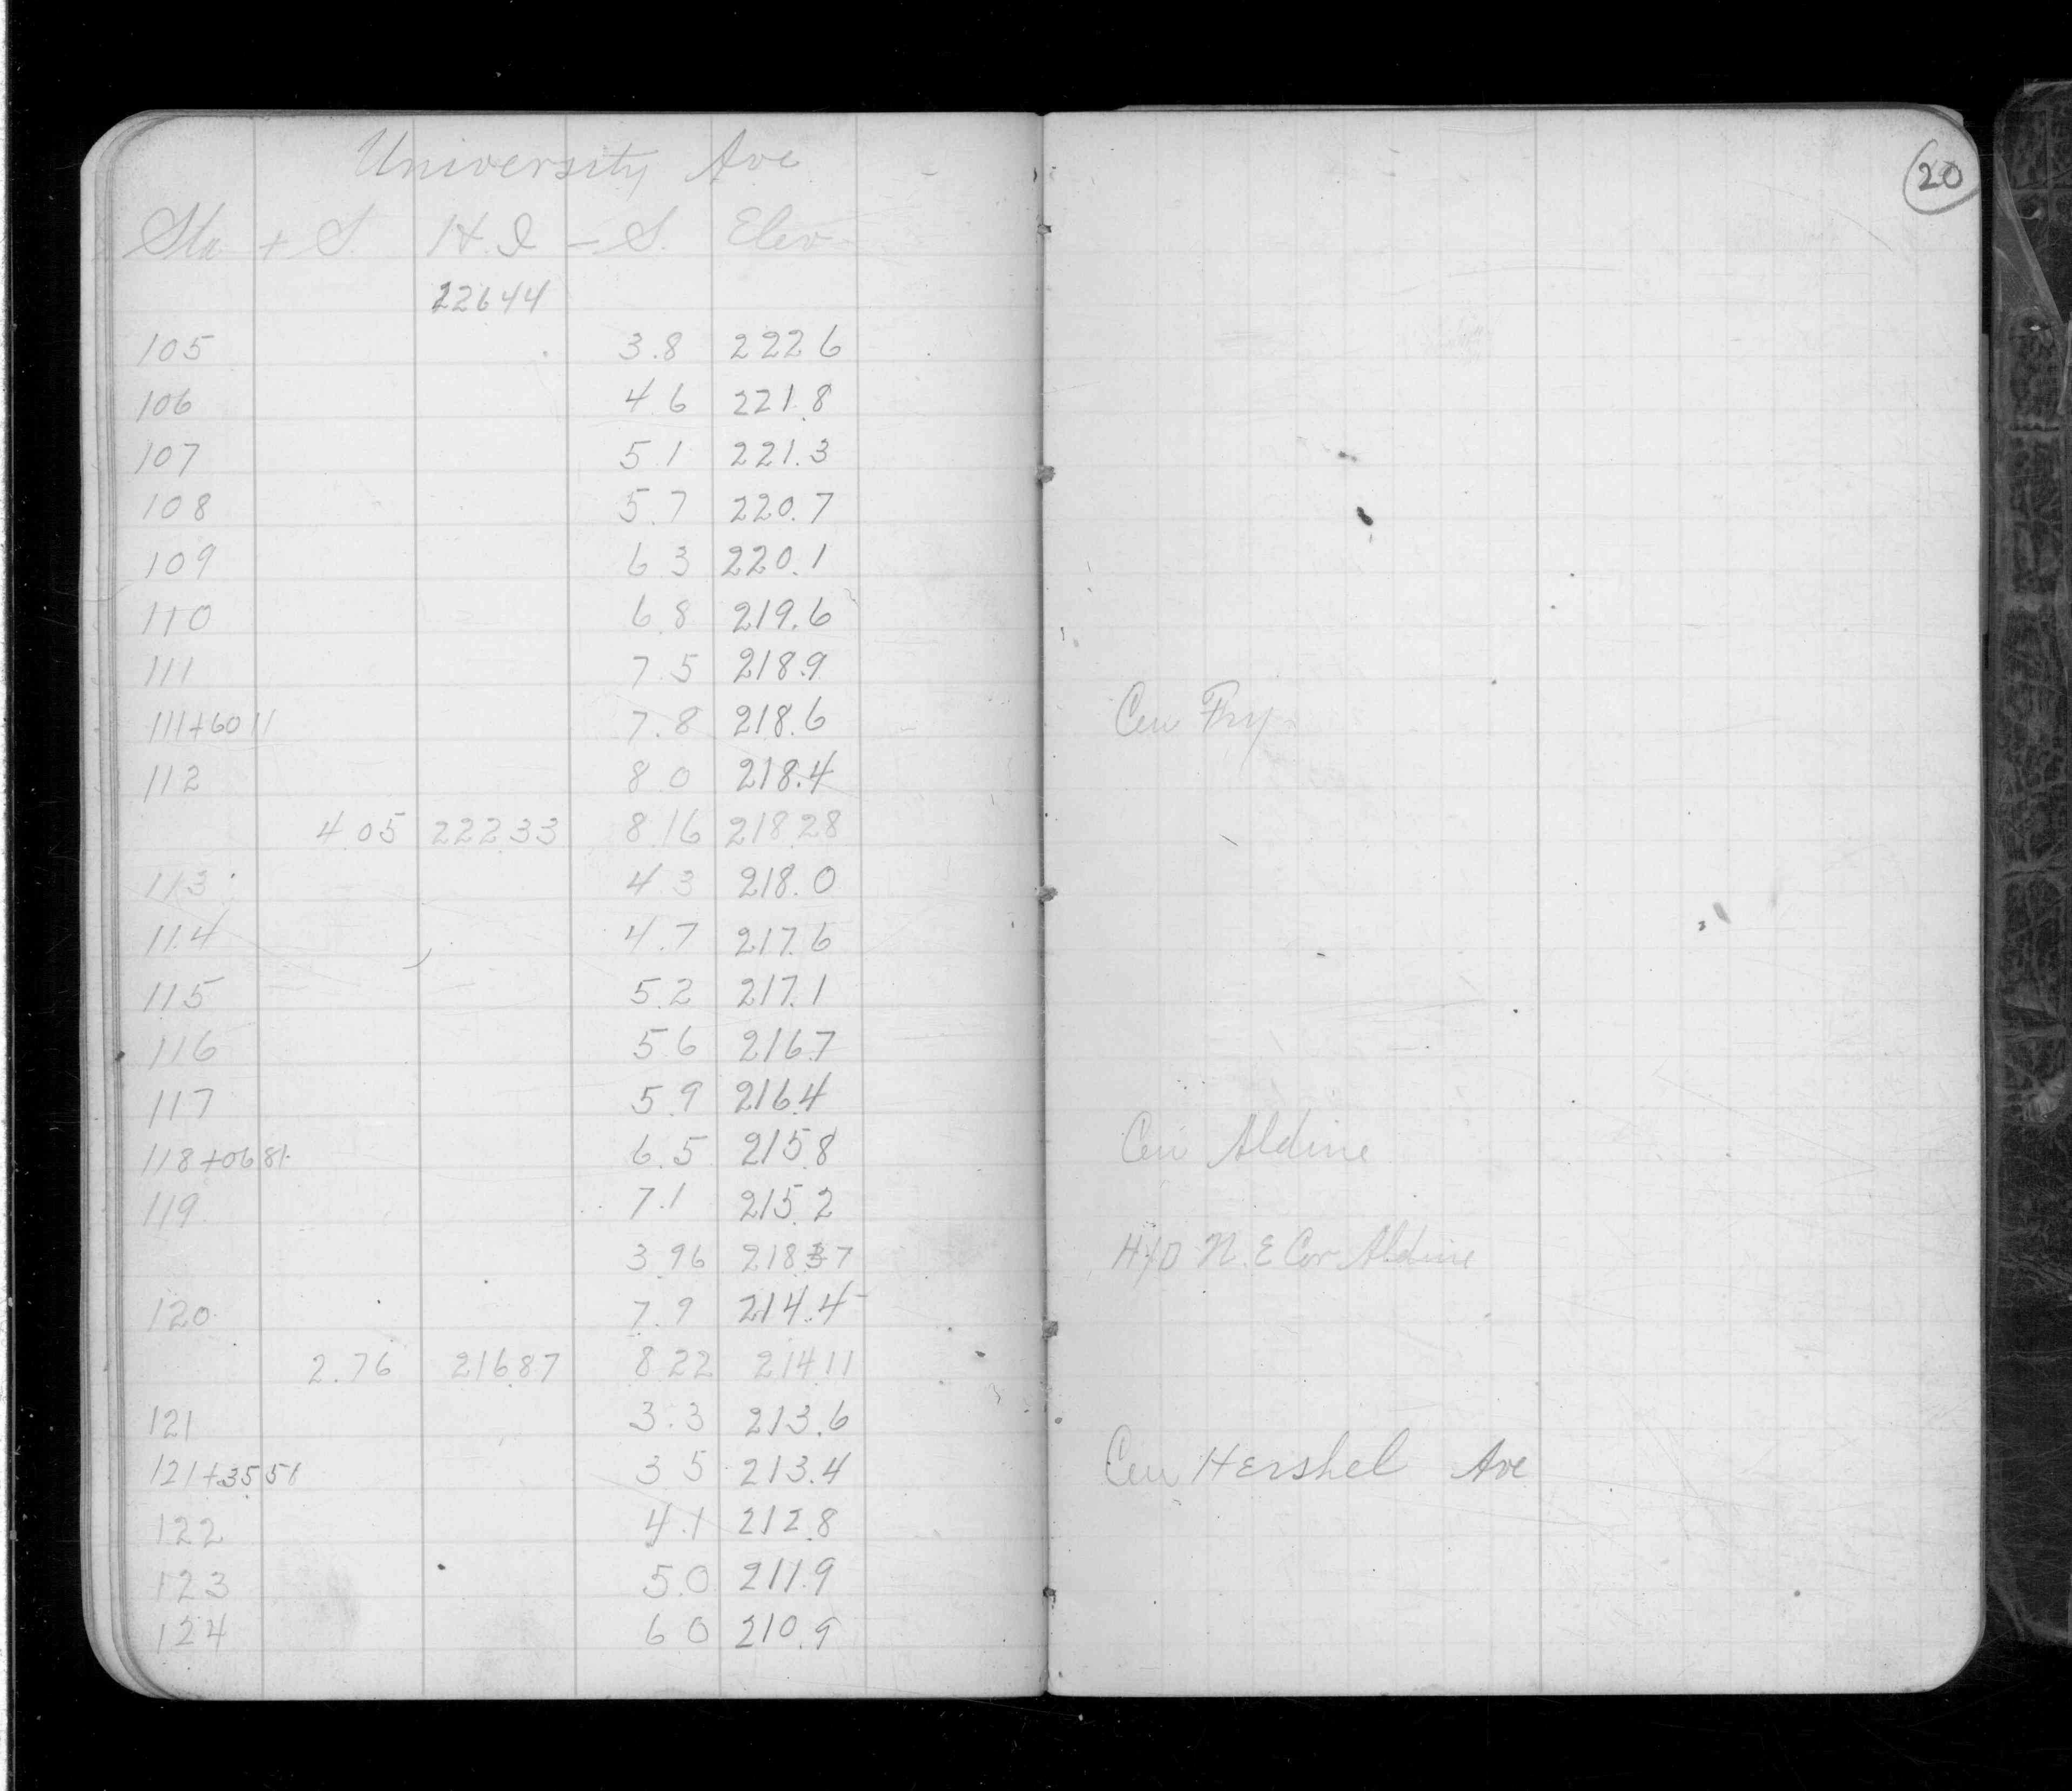 University Ave
20
Sta + S. H.I - S. Elev
22644
105 3.8 222 6
106 4 6 221.8
107 5 1 221.3
108 5.7 220.7
109 6 3 220.1
110 6 8 219.6
111 7.5 218.9
111+60 11 7.8 218.6 Cen Fry
112 8 0 218.4
4 05 222 33 8 16 218 28
113 4 3 218.0
114 4.7 217.6
115 5.2 217.1
116 5 6 216.7
117 5.9 216.4
118+06 81 6.5 215.8 Cen Aldine
119 7.1 215.2
3 96 218 37 Hyd N.E Cor Aldine
120 7.9 214.4
2.76 216.87 8 22 214 11
121 3.3 213.6
121+35 51 3 5 213.4 Cen Hershel Ave
122 4.1 212.8
123 5.0 211.9
124 6 0 210.9